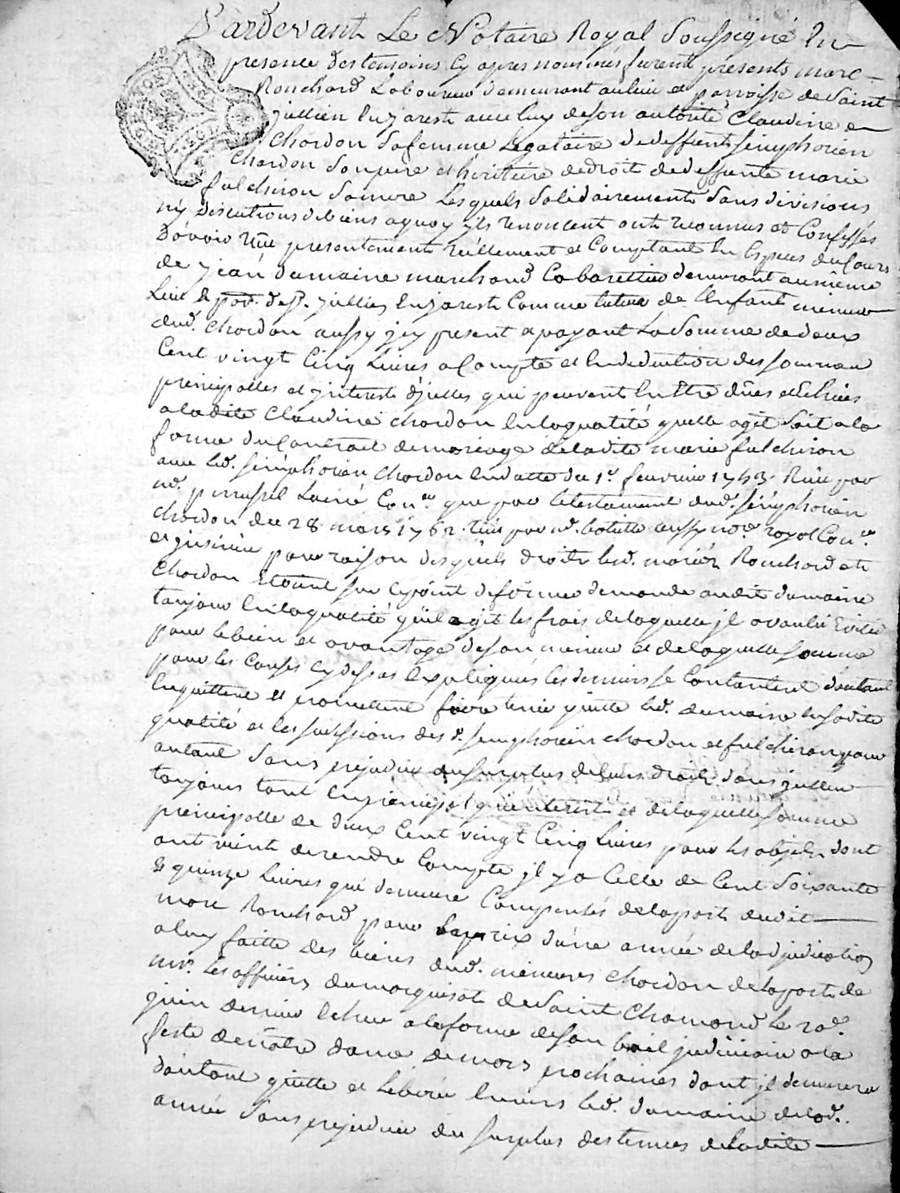 Pardevant Le Notaire Royal Soussigné En
presence des temoins Cy apres nommés furent presents marc
Ronchard Laboureur demeurant au lieu et parroisse de Saint
jullien En jarest avec luy de son autorité Claudine
Chordon Sa femme Legataire de deffunt Simphorien
Chordon Son pere et héritiere de droit de deffunte marie
fulchiron Sa mere Lesquels Solidairement Sans divisions
ny discutions de biens a quoy ils renoncent ont reconnus et Confessés
D'avoir Reçu presentement réellement et Comptant En Especes du Cours
de jean dumaine marchand Cabarettier demeurant au même
Lieu & parr. de St. jullien En jarest Comme tuteur de L'enfant mineur
dud. Chordon aussy icy present & payant La Somme de deux
Cent vingt Cinq Livres a Compte et En deduction des Sommes
principalles et interests d'icelles qui peuvent Etre dûes et Echües
a ladite Claudine Chordon En la qualité quelle agit Soit a la
forme du Contrat de mariage de ladite marie fulchiron
avec led. Simphorien Chordon En datte du 1er. fevrier 1743. Reçu par
me. perrussel Lainé Con. re que par le testament dud. Simphorien
Chordon du 28 mars 1762. reçu par me. aussy nore. royal Con. re
et pour raison desquels droits led. mariés Ronchard et
Chordon Etoient Sur le point de former demande audit dumaine
toujour En la qualité qu'il agit les frais de laquelle il a voulu Eviter
pour le bien et avantage de Son mineur et de laquelle Somme
pour les Causes Cy dessus Expliqués les derniers Se Contantent d'autant
En quittent et promettent faire tenir quitte led. dumaine En Sadite
qualité et les Successions des d. Simphorien Chordon et fulchiron pour
autant Sans prejudice du Surplus de leurs droits dans icelles
toujours tant En principal qu'interests et de laquelle Somme
principalle de deux Cent vingt Cinq Livres pour les objets dont
ont vient de rendre Compte il y a Celle de Cent Soixante
& quinze Livres qui demeure Compensée de la part dudit
marc Ronchard pour le prix d'une année de ladjudication
a luy faitte des biens dud. mineures Chordon de la part de
mrs. Les officiers du marquisat de Saint Chamond le 20e.
juin dernier Echue a la forme de Son bail judiciaire a la
feste de nôtre dame de mars prochaines dont il demeurera
d'autant quitte et Liberé Envers led. dumaine de lad.
année Sans prejudice du Surplus des termes de ladite